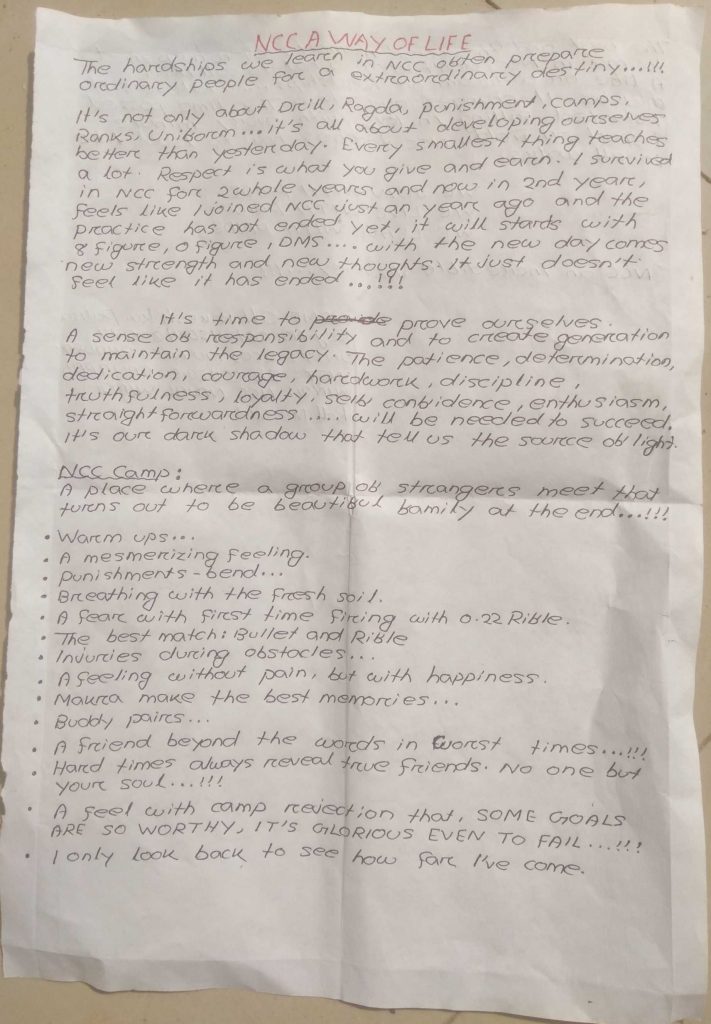 NCC A WAY OF LIFE
The hardships we learn in NCC often prepare
ordinary people for a extraordinary destiny...!!!
It's not only about Drill, Ragda, punishment, camps,
Ranks, Uniform... it's all about developing ourselves
better than yesterday. Every smallest thing teaches
a lot. Respect is what you give and earn. I survived
in NCC for 2 whole years and now in 2nd year,
feels like I joined NCC just an year ago and the
practice has not ended yet, it will stards with
8 figure, 0 figure, DMS.... with the new day comes
new strength and new thoughts. It just doesn't
feel like it has ended...!!!
It's time to provide prove ourselves.
A sense of responsibility and to create generation
to maintain the legacy. The patience, determination,
dedication, courage, hardwork, discipline,
truthfulness, loyalty, self confidence, enthusiasm,
straightforwardness .... will be needed to succeed.
It's our dark shadow that tell us the source of light.
NCC Camp:
A place where a group of strangers meet that
turns out to be beautiful family at the end...!!!
• Warm ups...
• A mesmerizing feeling.
• Punishments - bend...
• Breathing with the fresh soil.
• A fear with first time firing with 0.22 Rifle.
• The best match: Bullet and Rifle
• Injuries during obstacles...
• A feeling without pain, but with happiness.
• Makra make the best memories...
• Buddy pairs...
• A friend beyond the words in worst times...!!!
• Hard times always reveal true friends. No one but
your soul...!!!
• A feel with camp rejection that, SOME GOALS
ARE SO WORTHY, IT'S GLORIOUS EVEN TO FAIL...!!!
• I only look back to see how far I've come.